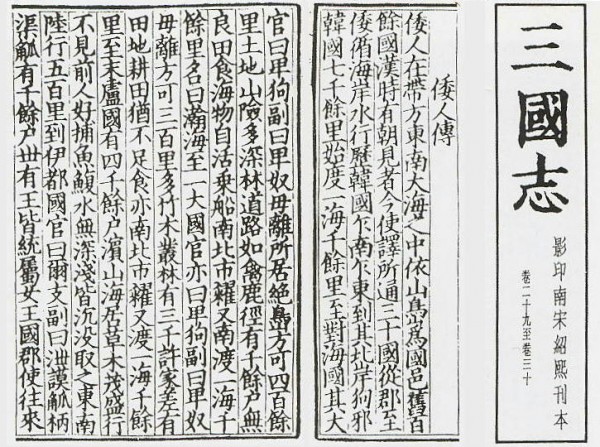 三國志
影印南宋紹熙刊本
卷二十九至卷三十
倭人傳
倭人在帶方東南大海之中依山㠀爲國邑舊百
餘國漢時有朝見者今使譯所通三十國從郡至
倭循海岸水行歷韓國乍南乍東到其北岸狗邪
韓國七千餘里始度一海千餘里至對海國其大
官曰卑狗副曰卑奴毋離所居絶㠀方可四百餘
里土地山險多深林道路如禽鹿徑有千餘戶無
良田食海物自活乗船南北市糴又南渡一海千
餘里名曰瀚海至一大國官亦曰卑狗副曰卑奴
毋離方可三百里多竹木叢林有三千許家差有
田地耕田猶不足食亦南北市糴又渡一海千餘
里至末盧國有四千餘戶濱山海居草木茂盛行
不見前人好捕魚鰒水無深淺皆沉没取之東南
陸行五百里到伊都國官曰爾支副曰泄謨觚柄
渠觚有千餘戶丗有王皆統屬女王國郡使往來